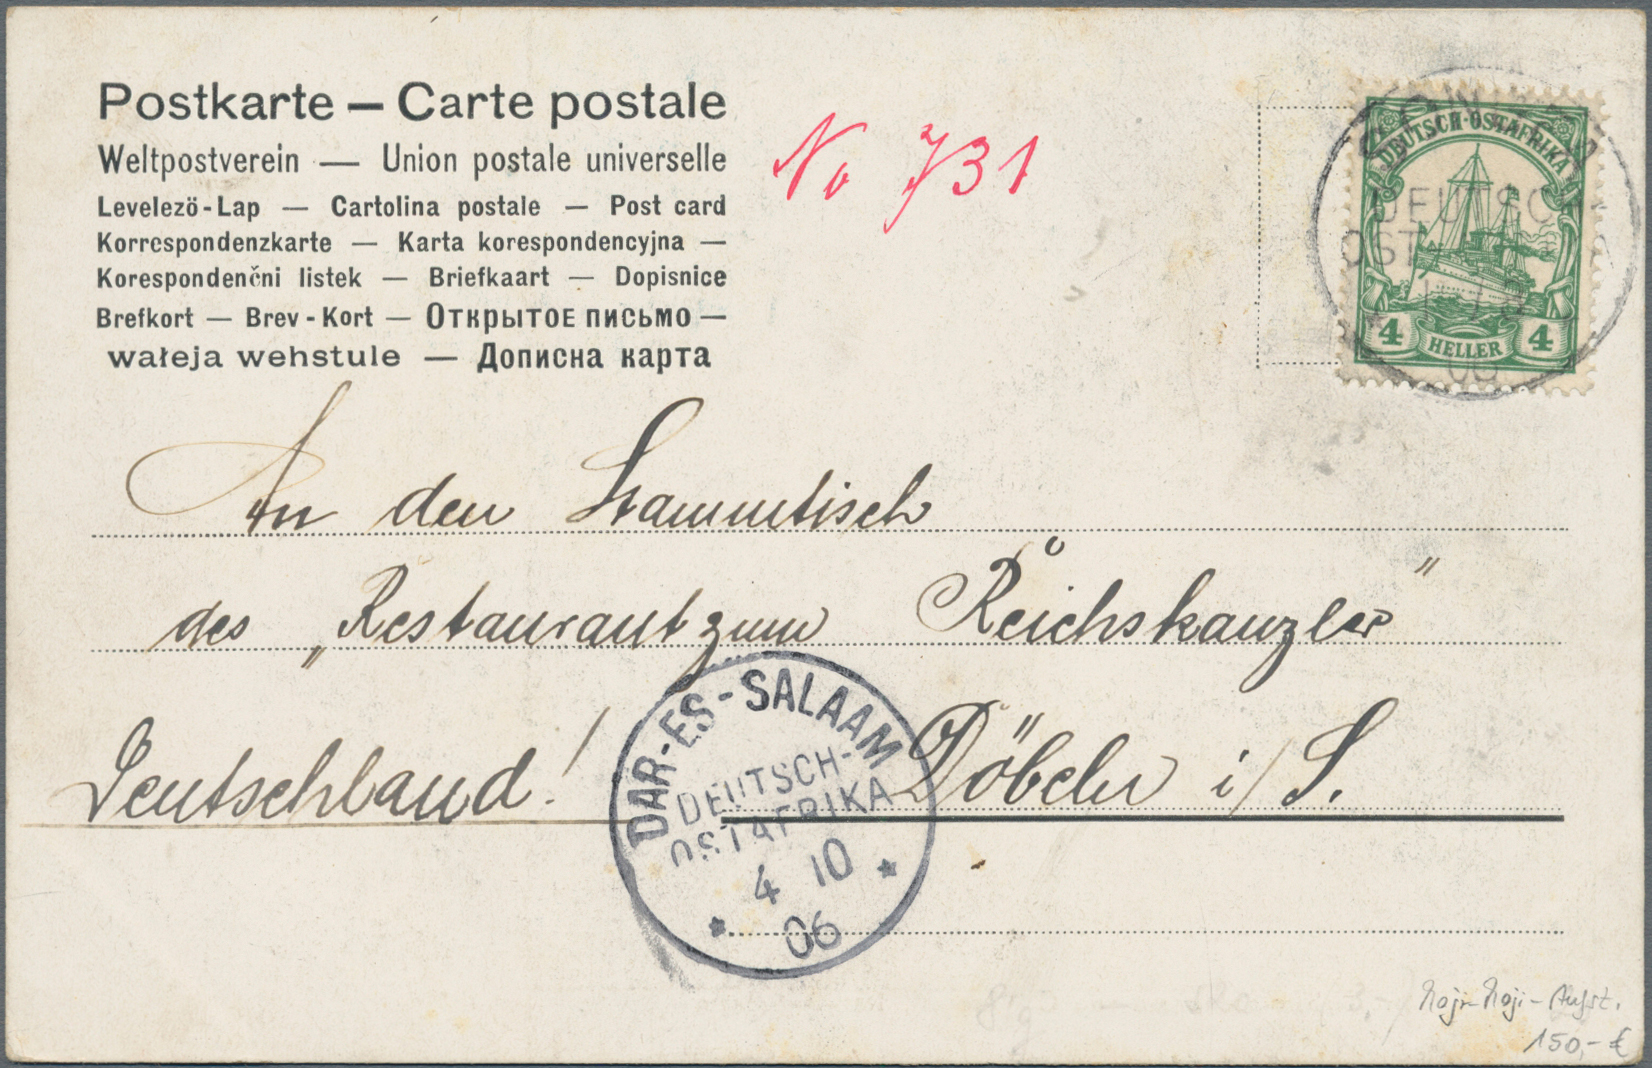 Postkarte — Carte postale
Weltpostverein — Union postale universelle
Levelezö-Lap — Cartolina postale — Post card
Korrespondenzkarte — Karta korespondencyjna —
Korespondenčni listek — Briefkaart — Dopisnice
Brefkort — Brev-Kort — Открытое письмо —
wałeja wehstule — Дописна карта
No 731
DEUTSCH-OSTAFRIKA
4 HELLER 4
An den Stammtisch
des „Restaurant zum Reichskanzler"
Deutschland! Döbeln i/S.
DAR-ES-SALAAM
DEUTSCH-
OSTAFRIKA
4 10
06
Maji-Maji-Aufst.
150,- €